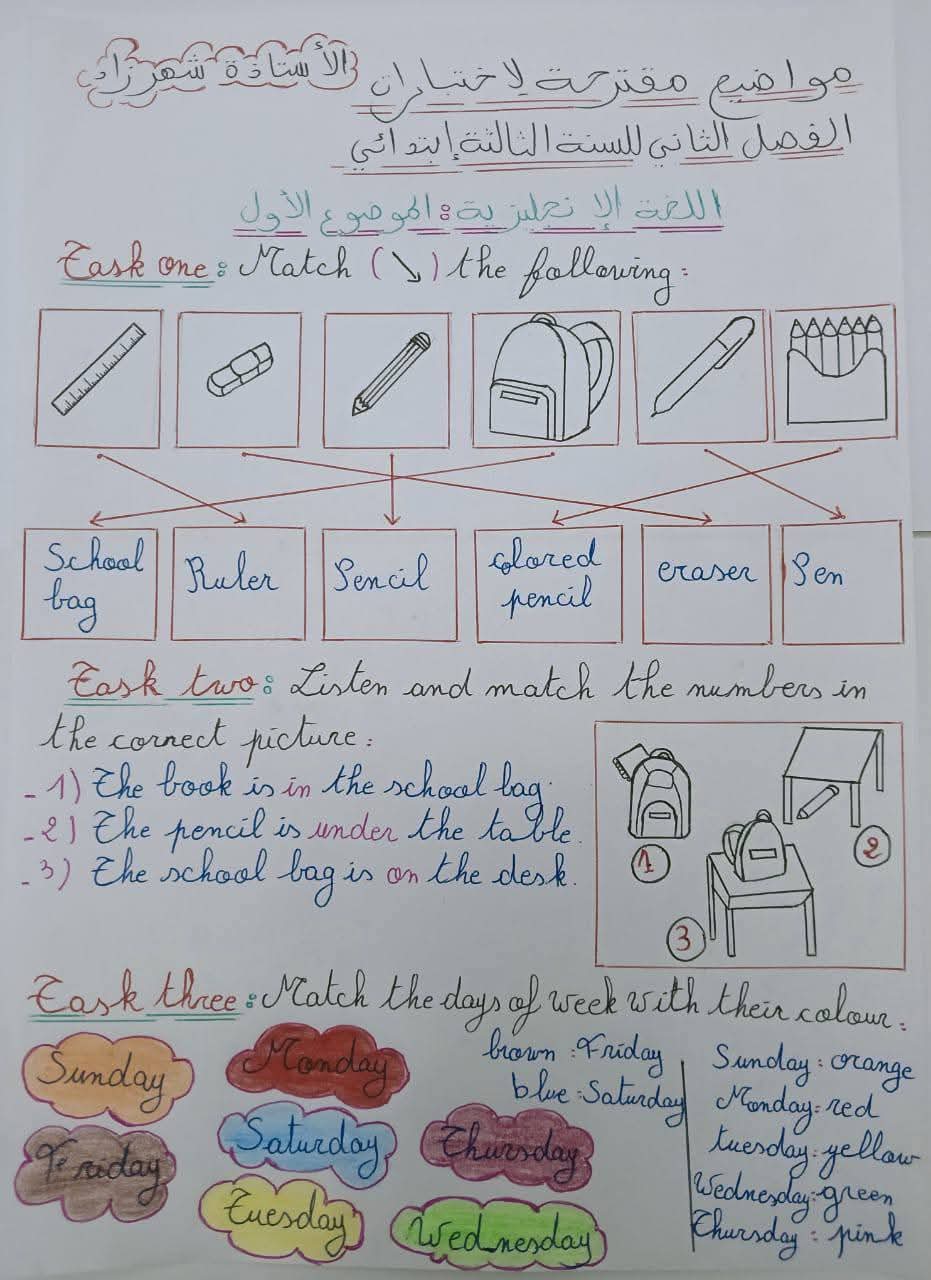 الأستاذة شهرزاد
مواضيع مقترحة لاختبارات
الفصل الثاني للسنة الثالثة إبتدائي
اللغة الإنجليزية: الموضوع الأول
Task one: Match (↘) the following:
School bag
Ruler
Pencil
colored pencil
eraser
Pen
Task two: Listen and match the numbers in
the correct picture:
- 1) The book is in the school bag.
- 2) The pencil is under the table.
- 3) The school bag is on the desk.
1
2
3
Task three: Match the days of week with their colour:
Sunday
Monday
Friday
Saturday
Thursday
Tuesday
Wednesday
brown: Friday
blue: Saturday
Sunday: orange
Monday: red
tuesday: yellow
Wednesday: green
Thursday: pink